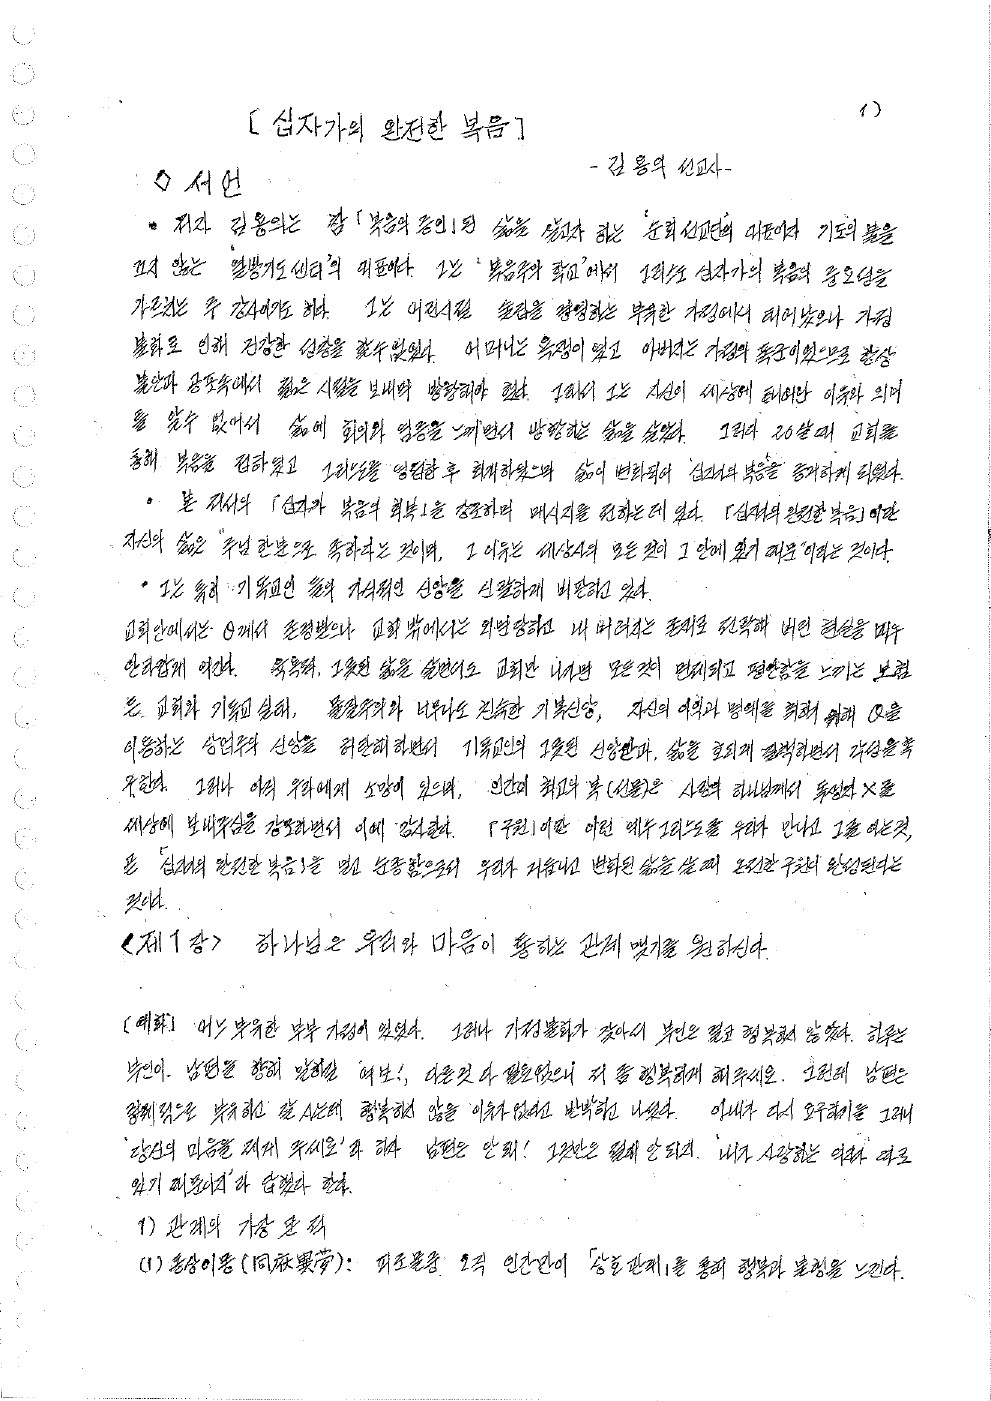 1)
[십자가의 완전한 복음]
- 김용의 선교사 -
◇ 서언
• 저자 김용의는 참「복음의 증인」된 삶을 살고자 하는 '순회선교단'의 대표이자 기도의 불을
끄지 않는 '열방기도센터'의 대표이다. 그는 '복음주의 학교'에서 그리스도 십자가의 복음의 중요성을
가르치는 주 강사이기도 하다. 그는 어린시절 술집을 경영하는 부유한 가정에서 태어났으나 가정
불화로 인해 건강한 성장을 할수 없었다. 어머니는 욕쟁이였고 아버지는 가정의 폭군이었으므로 항상
불안과 공포속에서 젊은 시절을 보내며 방황해야 했다. 그래서 그는 자신이 세상에 태어난 이유와 의미
를 알수 없어서 삶에 회의와 염증을 느끼면서 방황하는 삶을 살았다. 그러다 20살때 교회를
통해 복음을 접하였고 그리스도를 영접한 후 회개하였으며 삶이 변화되어 '십자가의 복음'을 증거하게 되었다.
• 본 저서의「십자가 복음의 회복」을 강조하며 메시지를 전하는데 있다.「십자가의 완전한 복음」이란
자신의 삶은 "주님 한분으로 족하다는 것이며, 그 이유는 세상사의 모든 것이 그 안에 있기 때문"이라는 것이다.
• 그는 특히 기독교인 들의 가식적인 신앙을 신랄하게 비판하고 있다.
교회안에서는 θ께서 존경받으나 교회 밖에서는 외면당하고 내버려지는 존재로 전락해 버린 현실을 매우
안타깝게 여긴다. 욕독적, 그릇된 삶을 살면서도 교회만 나가면 모든것이 면제되고 평안함을 느끼는 보험
든 교회와 기독교 실태, 물질주의와 너무나도 친숙한 기복신앙, 자신의 이익과 명예를 위해 θ을
이용하는 상업주의 신앙을 허탄해 하면서 기독교인의 그릇된 신앙관과, 삶을 호되게 질책하면서 각성을 촉
구한다. 그러나 아직 우리에게 소망이 있으며, 인간의 최고의 복(선물)은 사랑의 하나님께서 독생자 X를
세상에 보내주심을 강조하면서 이에 감사한다.「구원」이란 이런 예수 그리스도를 우리가 만나고 그를 아는것,
또「십자가의 완전한 복음」을 믿고 순종함으로써 우리가 거듭나고 변화된 삶을 살 때 온전한 구원이 완성된다는
것이다.
<제1장> 하나님은 우리와 마음이 통하는 관계 맺기를 원하신다.
[예화] 어느 부유한 부부 가정이 있었다. 그러나 가정불화가 잦아서 부인은 결코 행복하지 않았다. 하루는
부인이 남편을 향해 말하길 '여보!, 다른것 다 필요없으니 저 좀 행복하게 해주세요. 그런데 남편은
경제적으로 부유하고 잘 사는데 행복하지 않을 이유가 없다고 반박하고 나섰다. 아내가 다시 요구하기를 그러니
'당신의 마음을 제게 주세요'라 하자 남편은 안돼! 그것만은 절대 안되지. '내가 사랑하는 여자가 따로
있기 때문이지'라 답했다 한다.
1) 관계의 가장 큰 적
(1) 동상이몽(同床異夢): 피조물중 오직 인간만이「상호관계」를 통해 행복과 불행을 느낀다.